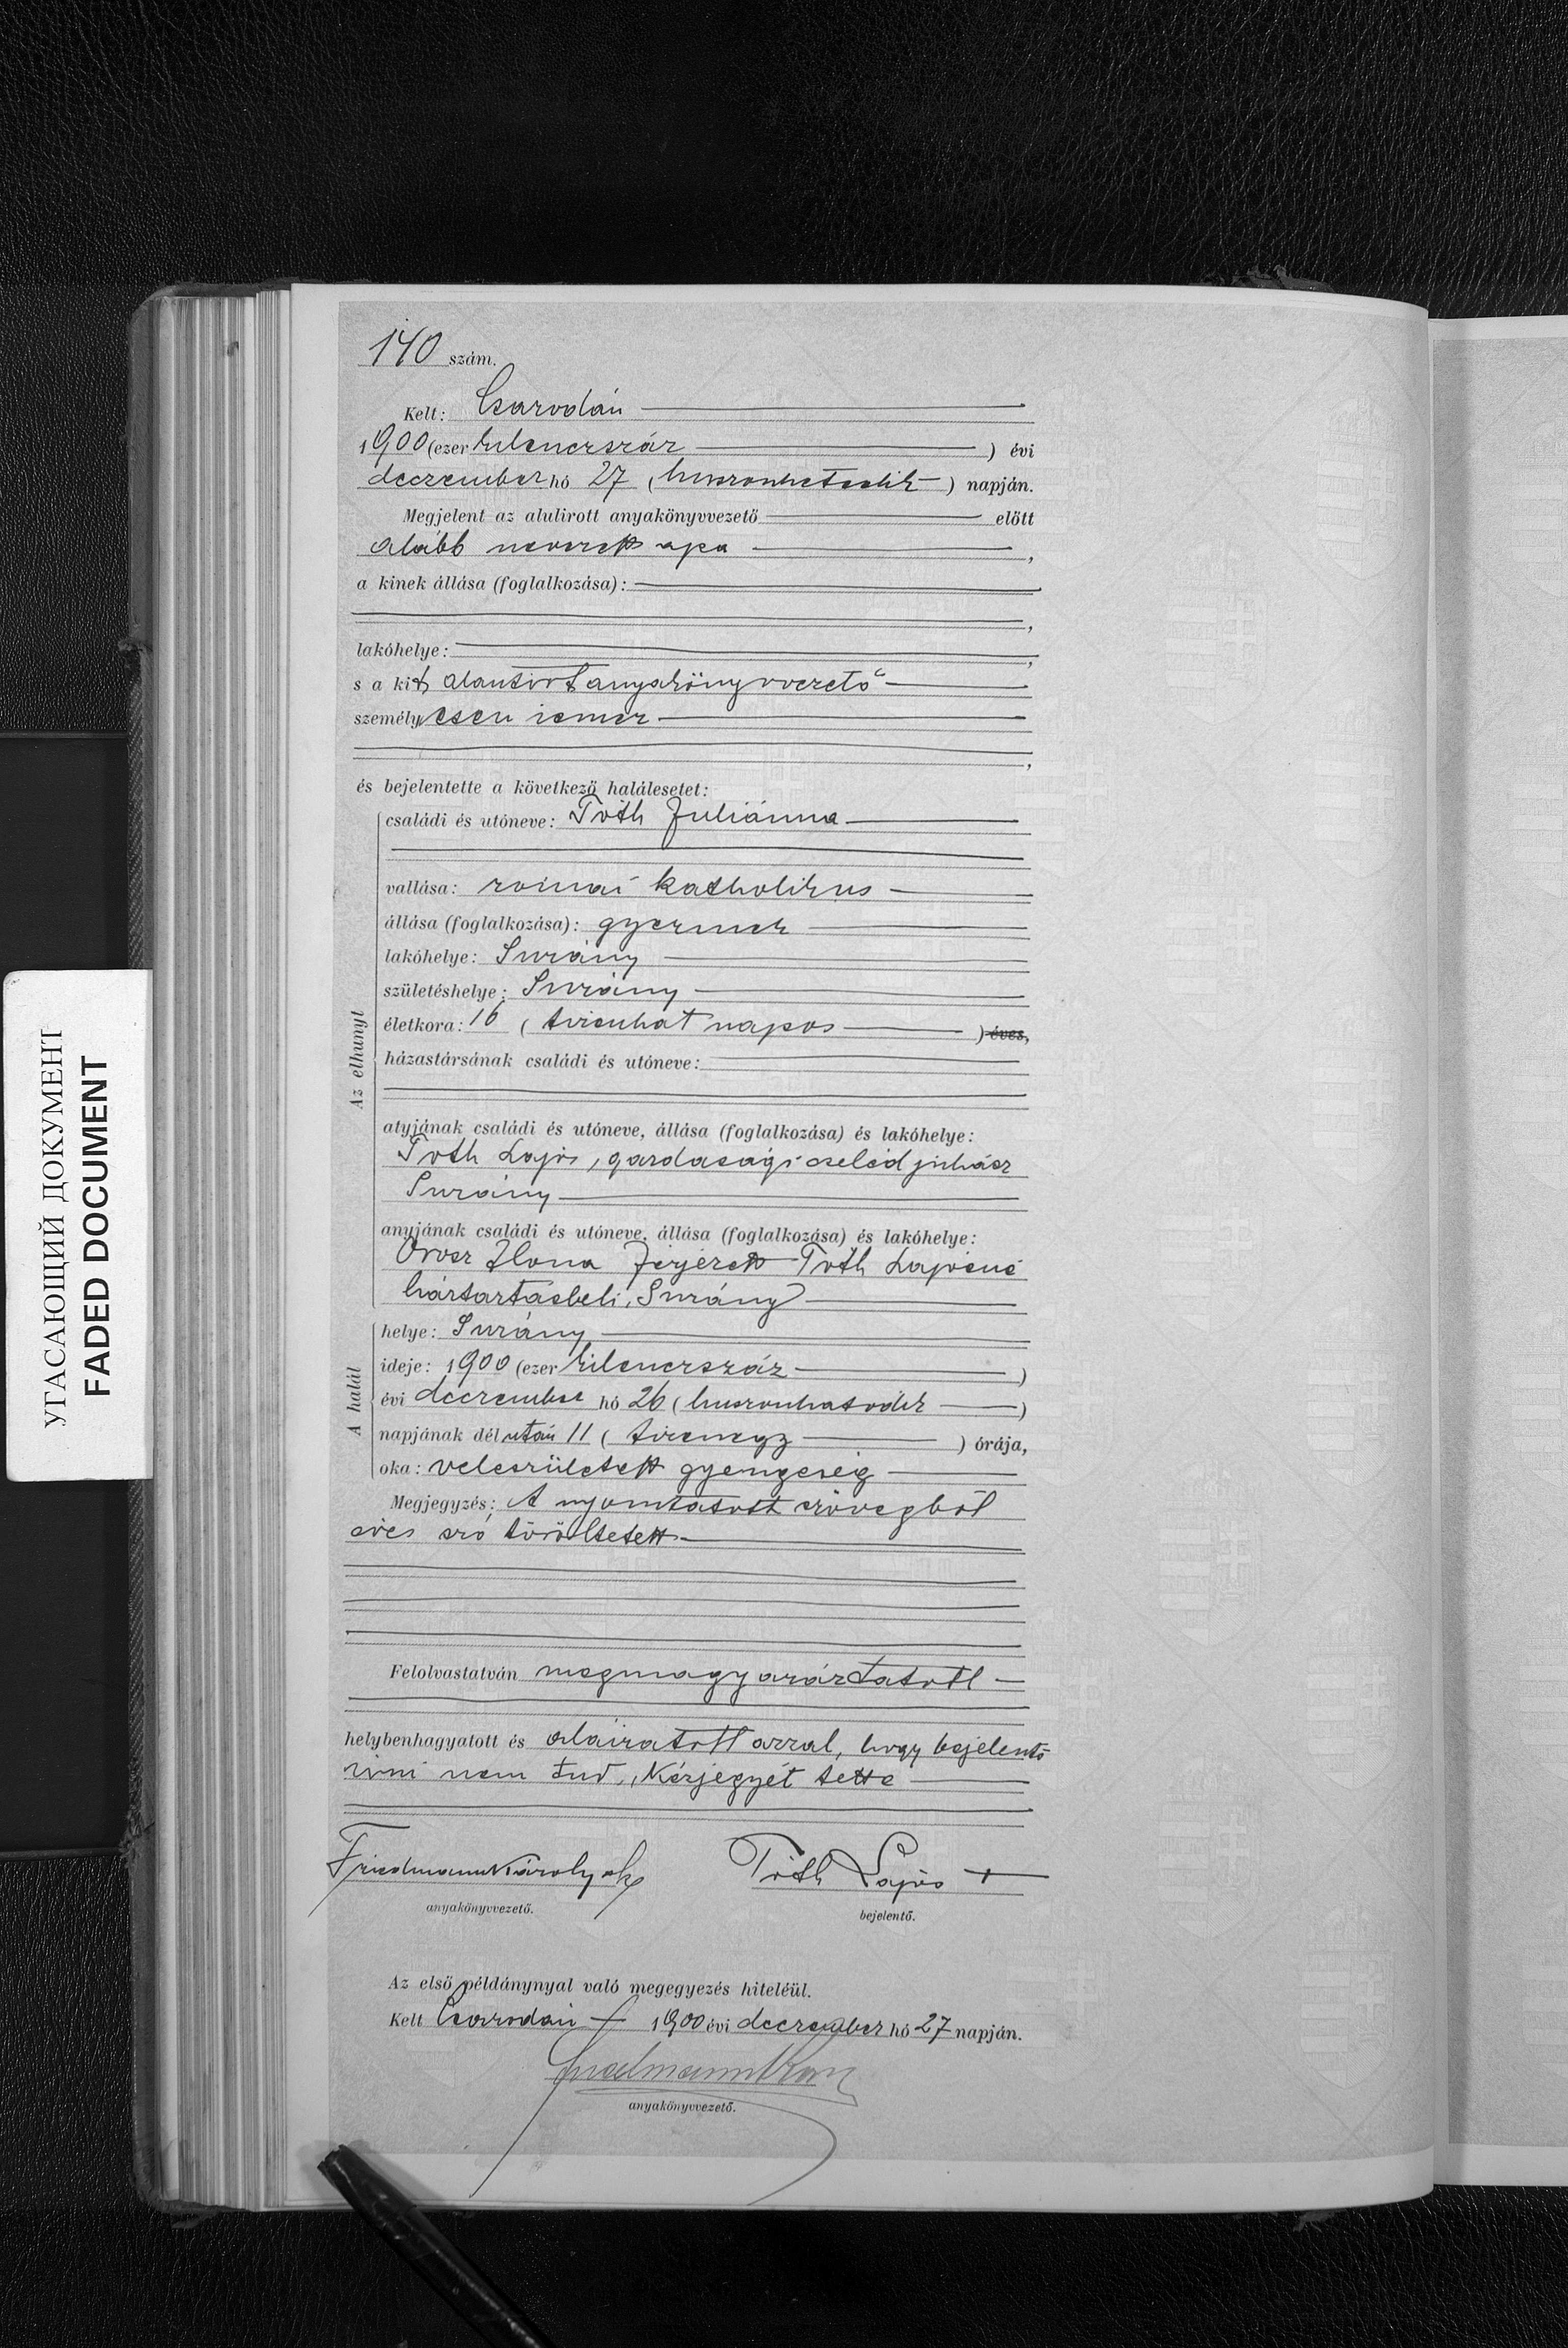 УГАСАЮЩИЙ ДОКУМЕНТ
FADED DOCUMENT
140 szám.
Kelt: Csarodán
1900 (ezer kilenczszáz ) évi
deczember hó 27 ( huszonhetedik ) napján.
Megjelent az alulirott anyakönyvvezető előtt
alább nevezett apa ,
a kinek állása (foglalkozása):
,
lakóhelye: ,
s a kit alantirott anyakönyvvezető
személyesen ismer
,
és bejelentette a következő halálesetet:
Az elhunyt
családi és utóneve: Tóth Juliánna
vallása: római katholikus
állása (foglalkozása): gyermek
lakóhelye: Surány
születéshelye: Surány
életkora: 16 ( tizenhat napos ) éves,
házastársának családi és utóneve:
atyjának családi és utóneve, állása (foglalkozása) és lakóhelye:
Tóth Lajos, gazdasági cseléd juhász
Surány
anyjának családi és utóneve, állása (foglalkozása) és lakóhelye:
Orosz Ilona férjezett Tóth Lajosné
háztartásbeli, Surány
A halál
helye: Surány
ideje: 1900 (ezer kilenczszáz )
évi deczember hó 26 ( huszonhatodik )
napjának délután 11 ( tizenegy ) órája,
oka: veleszületett gyengeség
Megjegyzés: A nyomtatott szövegből
éves szó töröltetett
Felolvastatván megmagyaráztatott
helybenhagyatott és aláiratott azzal, hogy bejelentő
irni nem tud, kézjegyét tette
Friedmann Károly sk Tóth Lajos +
anyakönyvvezető. bejelentő.
Az első példánynyal való megegyezés hiteléül.
Kelt Csarodán 1900 évi deczember hó 27 napján.
Friedmann Károly
anyakönyvvezető.